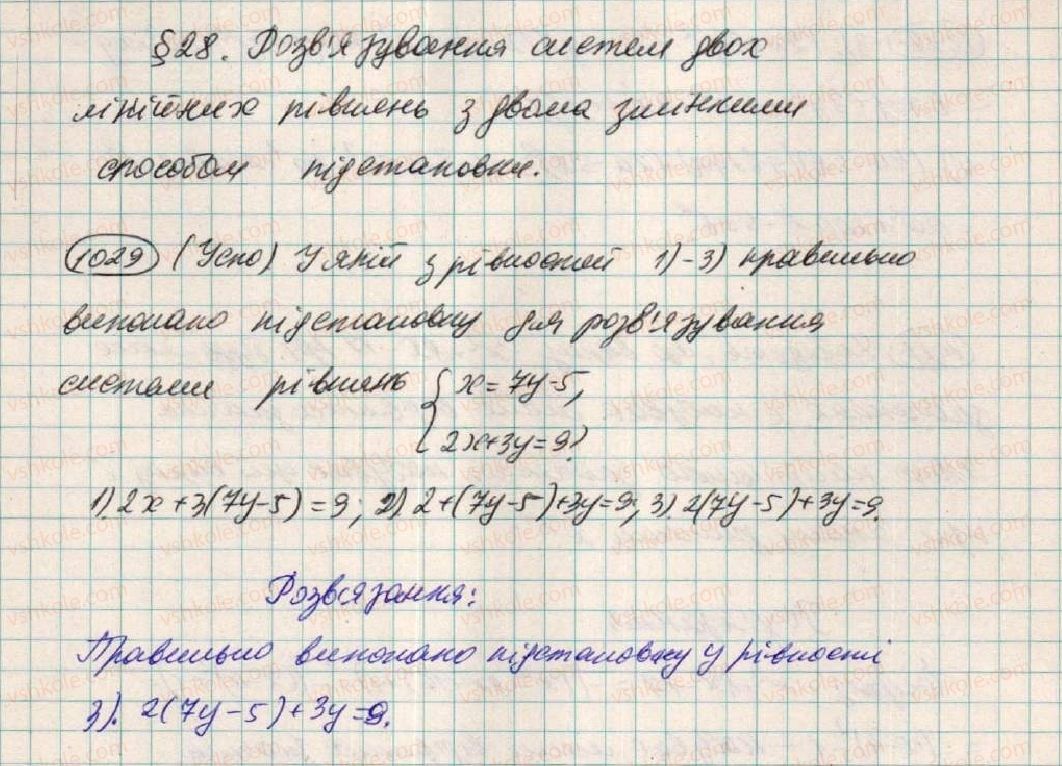 §28. Розв'язування систем двох
лінійних рівнянь з двома змінними
способом підстановки.
1029 (Усно) У якій з рівностей 1)-3) правильно
виконано підстановку для розв'язування
системи рівнянь { x = 7y-5,
2x+3y=9?
1). 2x + 3(7y-5) = 9; 2). 2+(7y-5)+3y=9; 3). 2(7y-5)+3y=9.
Розв'язання:
Правильно виконано підстановку у рівності
3). 2(7y-5)+3y=9.